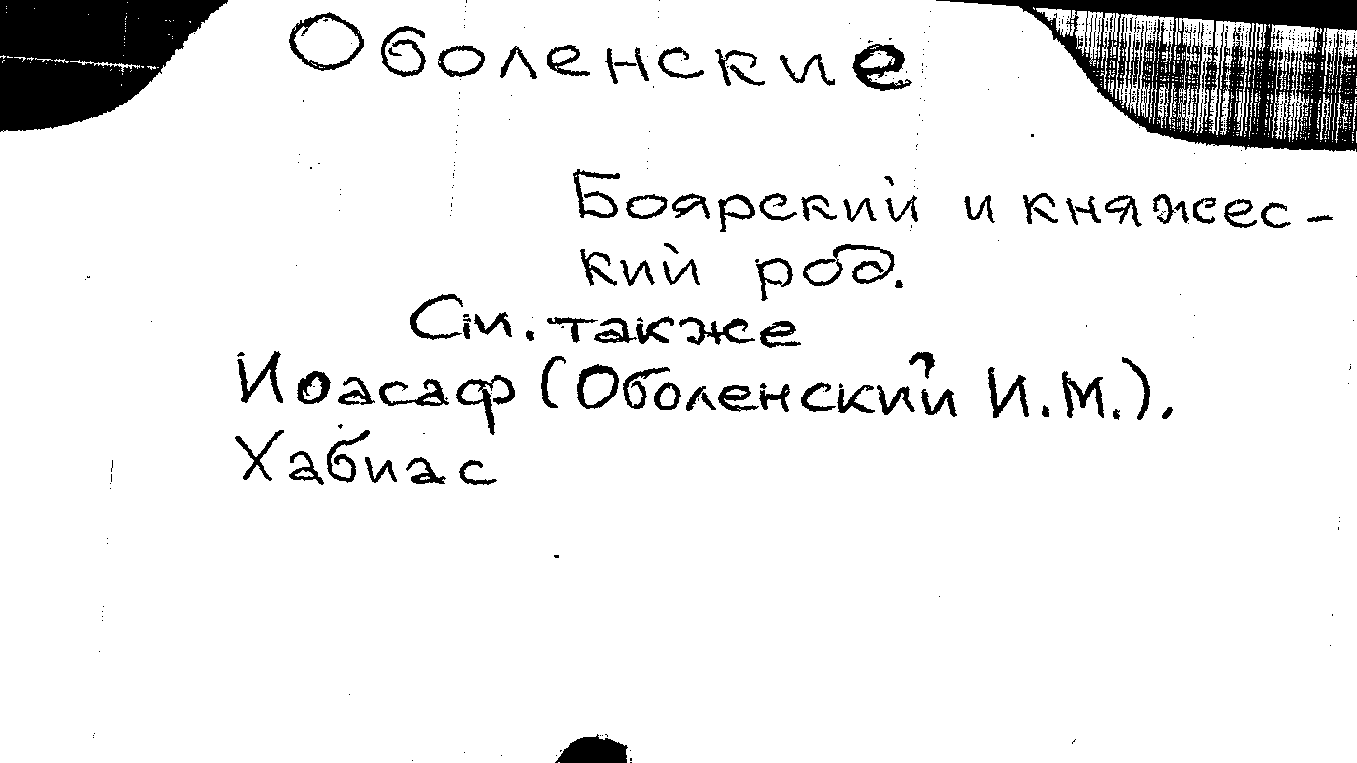 Оболенские
Боярский и княжес-
кий род.
См. также
Иоасаф (Оболенский И.М.).
Хабиас